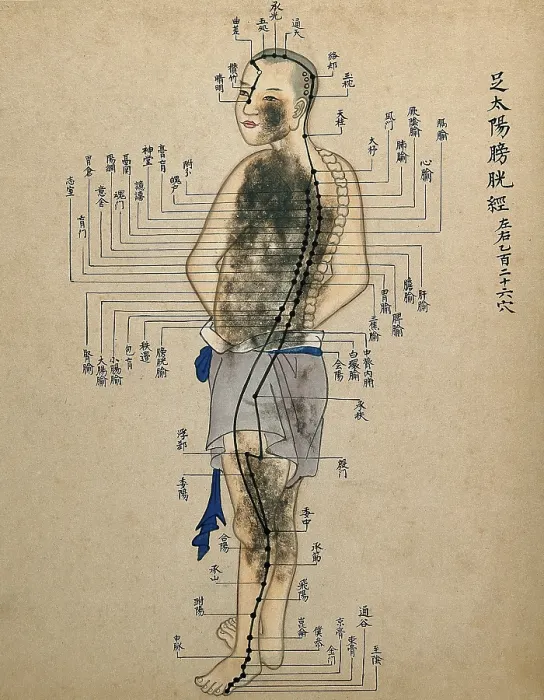 足太陽膀胱經
左右乙百二十六穴
承光
通天
五処
曲差
絡却
玉枕
攢竹
睛明
天柱
膈腧
厥陰腧
心腧
風门
肺腧
大杼
附分
魄户
膏肓
神堂
譩譆
魂门
陽綱
意舍
胃倉
志室
肓门
肝腧
膽腧
脾腧
胃腧
三焦腧
膀胱腧
秩邊
包肓
小腸腧
大腸腧
腎腧
中膂内腧
白環腧
会陽
承扶
殷门
浮郄
委陽
委中
合陽
承筋
承山
飛陽
跗陽
崑崙
僕参
申脉
金门
京骨
通谷
束骨
至陰